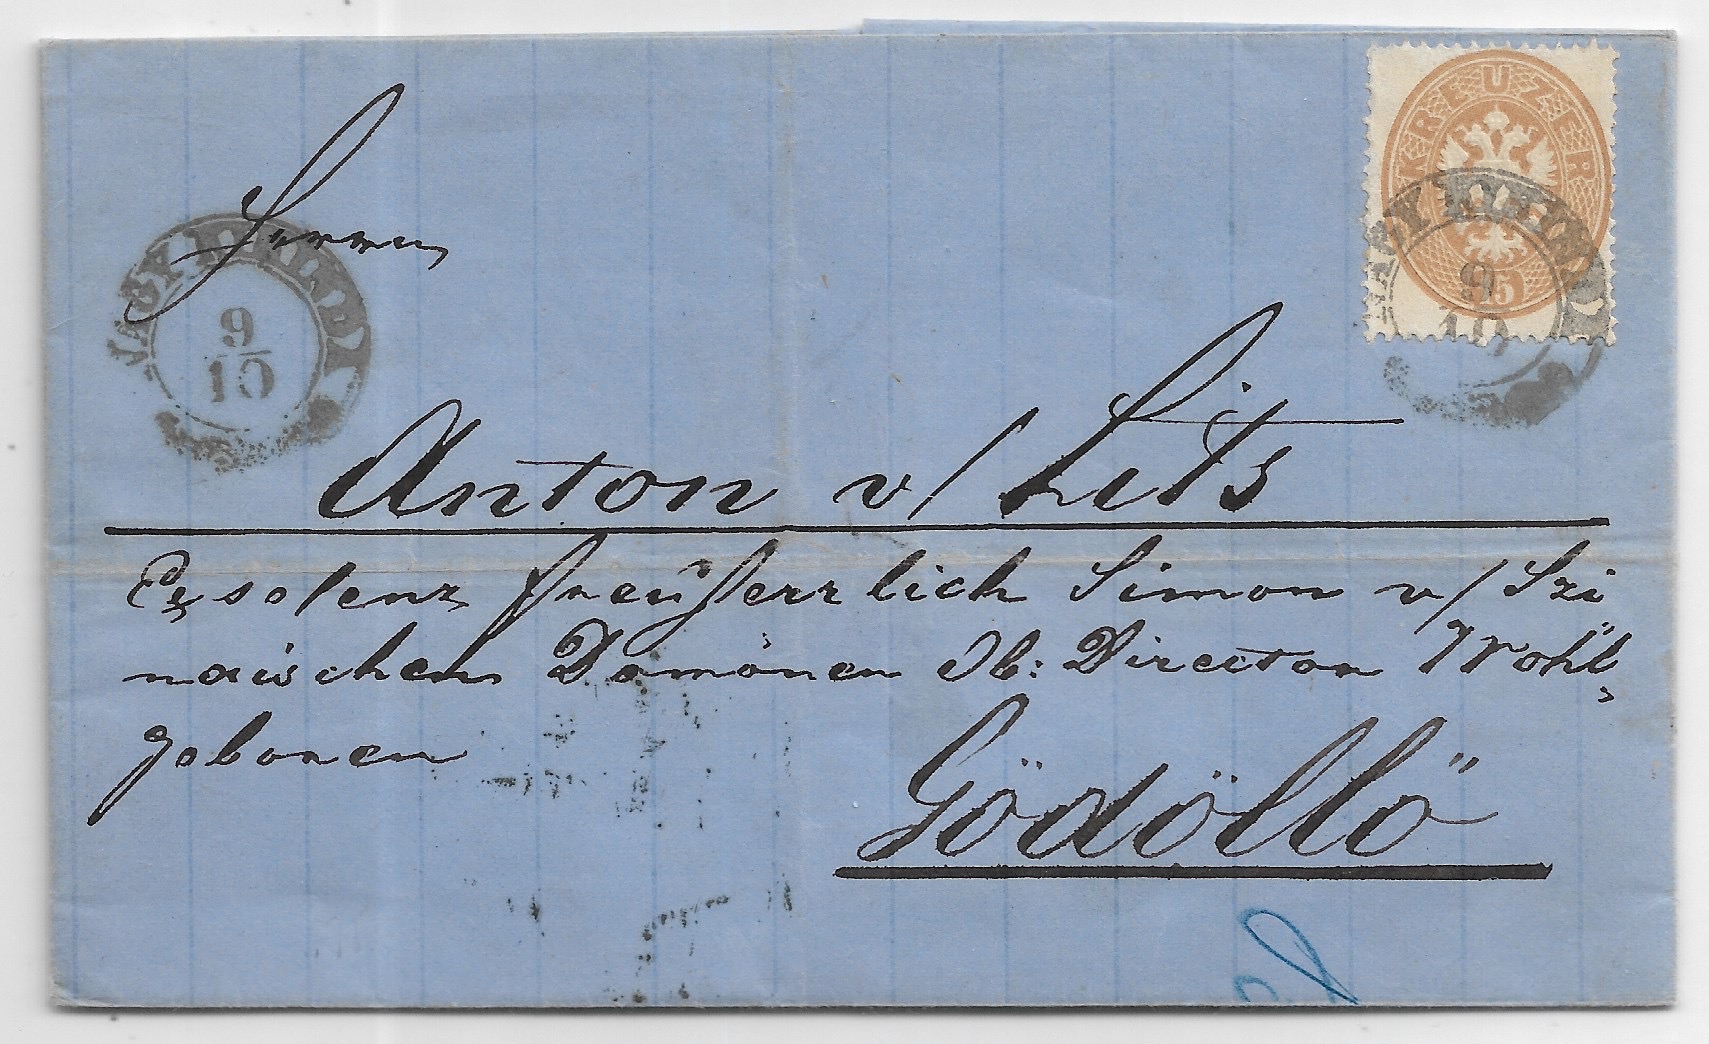 KREUZER
15
NAGY KÁLNA
9/10
Herrn
9
10
Anton v/ Lits
Exselenz freuherrlich Simon v/ Szi
naischen Domönen Ob: Director Wohl-
geboren
Gödöllö